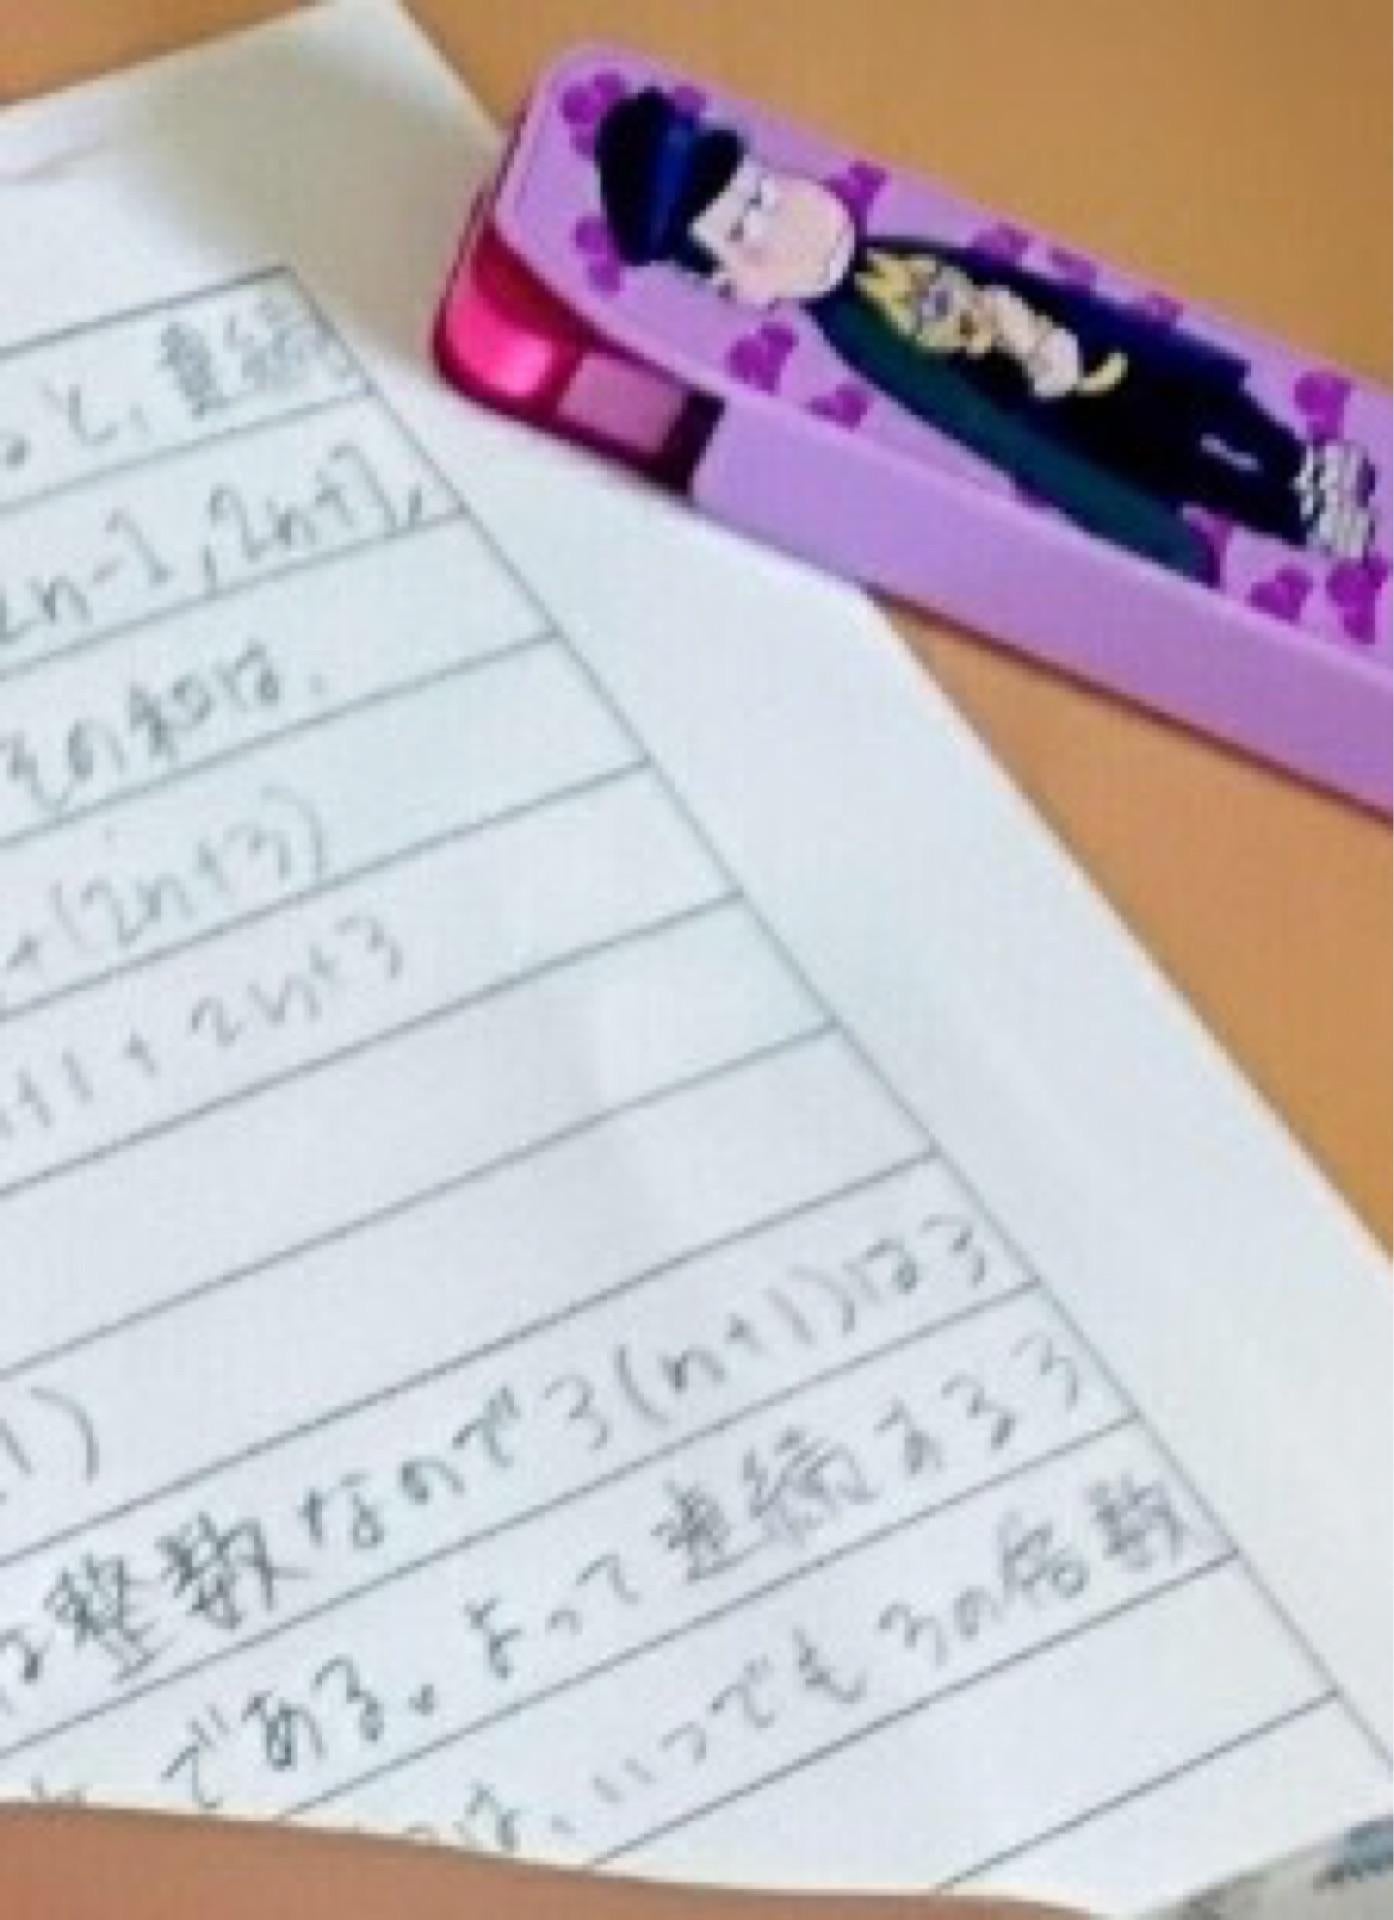 と、連続
2n-1, 2n+1,
その和は、
+(2n+3)
+1+2n+3
1)
は整数なので3(n+1)は3
である。よって連続する3
は、いつでも3の倍数